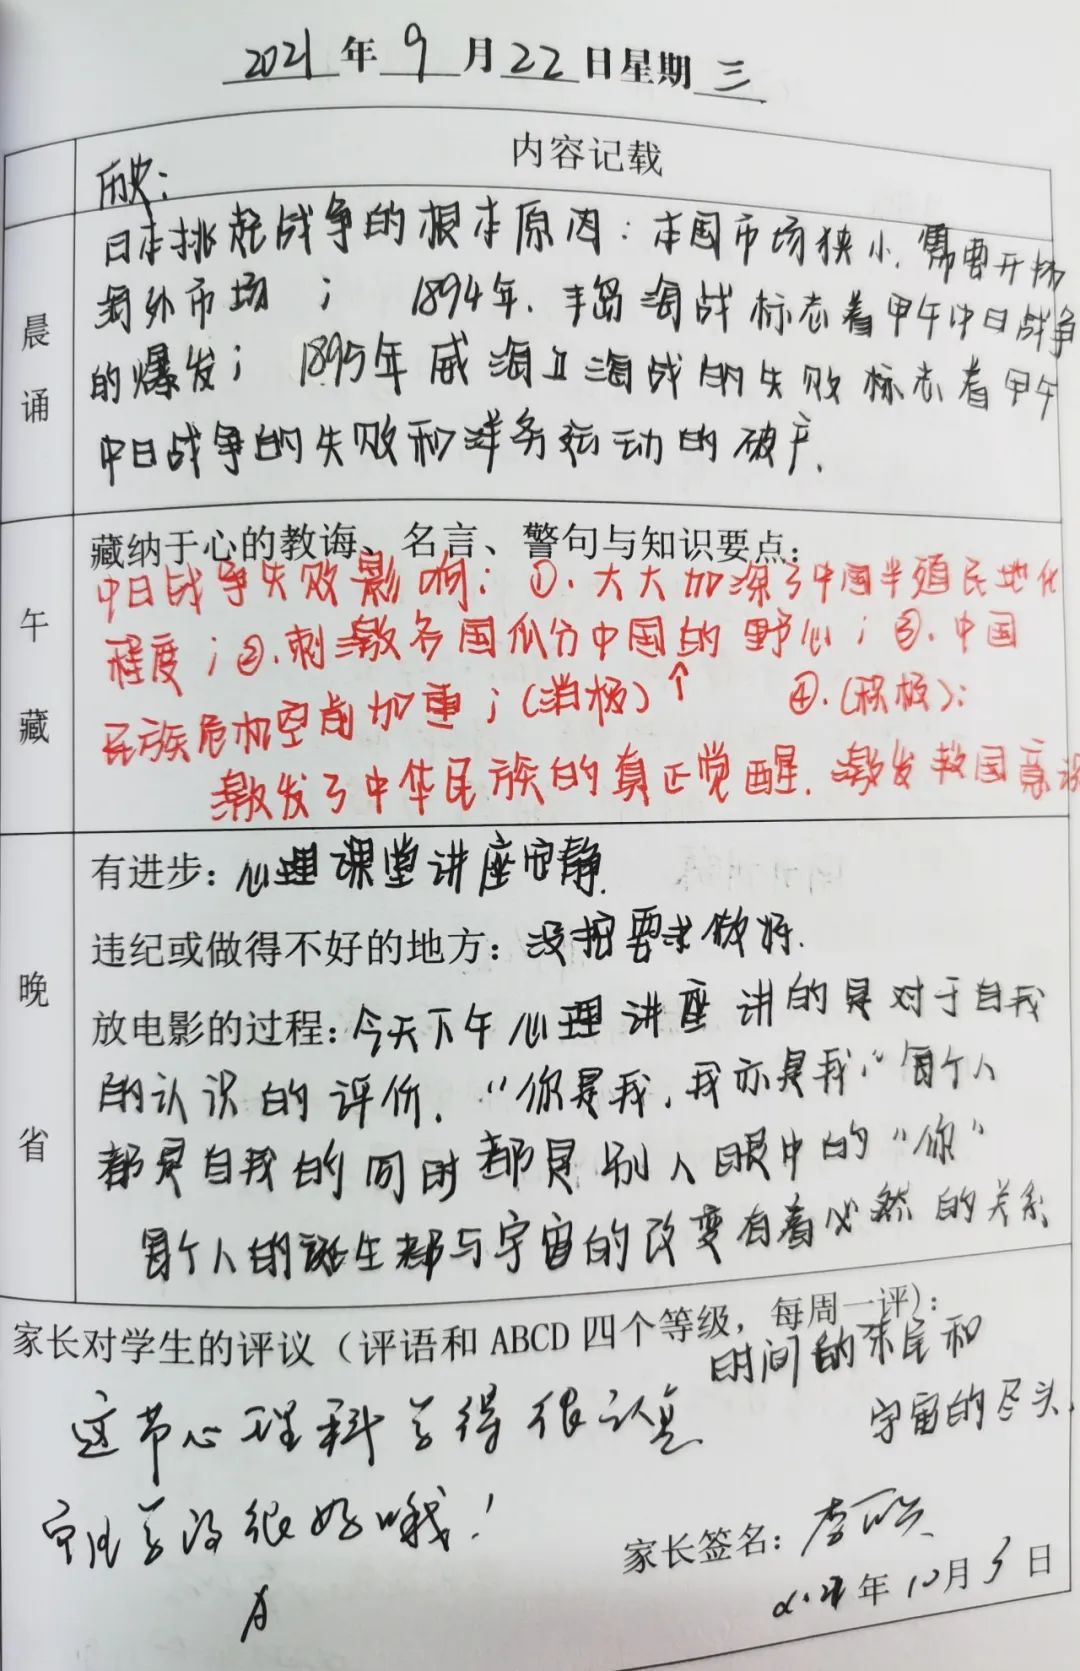 2021年9月22日星期三
内容记载
历史:
晨诵
日本挑起战争的根本原因:本国市场狭小,需要开拓
海外市场; 1894年,丰岛海战标志着甲午中日战争
的爆发; 1895年威海卫海战的失败标志着甲午
中日战争的失败和洋务运动的破产.
午藏
藏纳于心的教诲、名言、警句与知识要点:
中日战争失败影响:①.大大加深了中国半殖民地化
程度;②.刺激各国瓜分中国的野心;③.中国
民族危机空前加重;(消极)↑ ④.(积极):
激发了中华民族的真正觉醒.激发救国意识
晚省
有进步:心理课堂讲座安静.
违纪或做得不好的地方:没按要求做好.
放电影的过程:今天下午心理讲座讲的是对于自我
的认识的评价.“你是我,我亦是我,”每个人
都是自我的同时都是别人眼中的“你”
每个人的诞生都与宇宙的改变有着必然的关系
家长对学生的评议(评语和ABCD四个等级,每周一评):
时间的末尾和
宇宙的尽头.
这节心理科学得很认真
学得很好哦!
A
家长签名:李
2021年10月3日